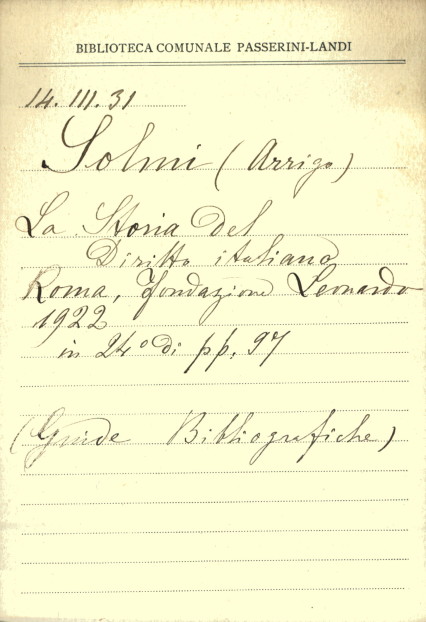 BIBLIOTECA COMUNALE PASSERINI-LANDI
14. III. 31
Solmi (Arrigo)
La Storia del
Diritto italiano
Roma, Fondazione Leonardo
1922
in 24° di pp. 97
(Guide Bibliografiche)